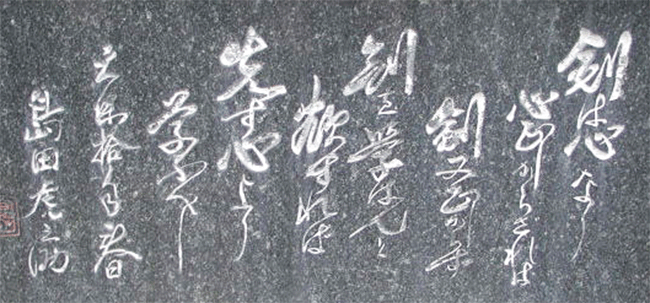 剣は心なり
心正からざれは
剣又正からず
剣を学はんと
欲すれは
先す心より
学ふへし
天保拾年春
島田虎之助